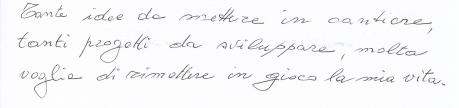 Tante idee da mettere in cantiere,
tanti progetti da sviluppare, molta
voglia di rimettere in gioco la mia vita.